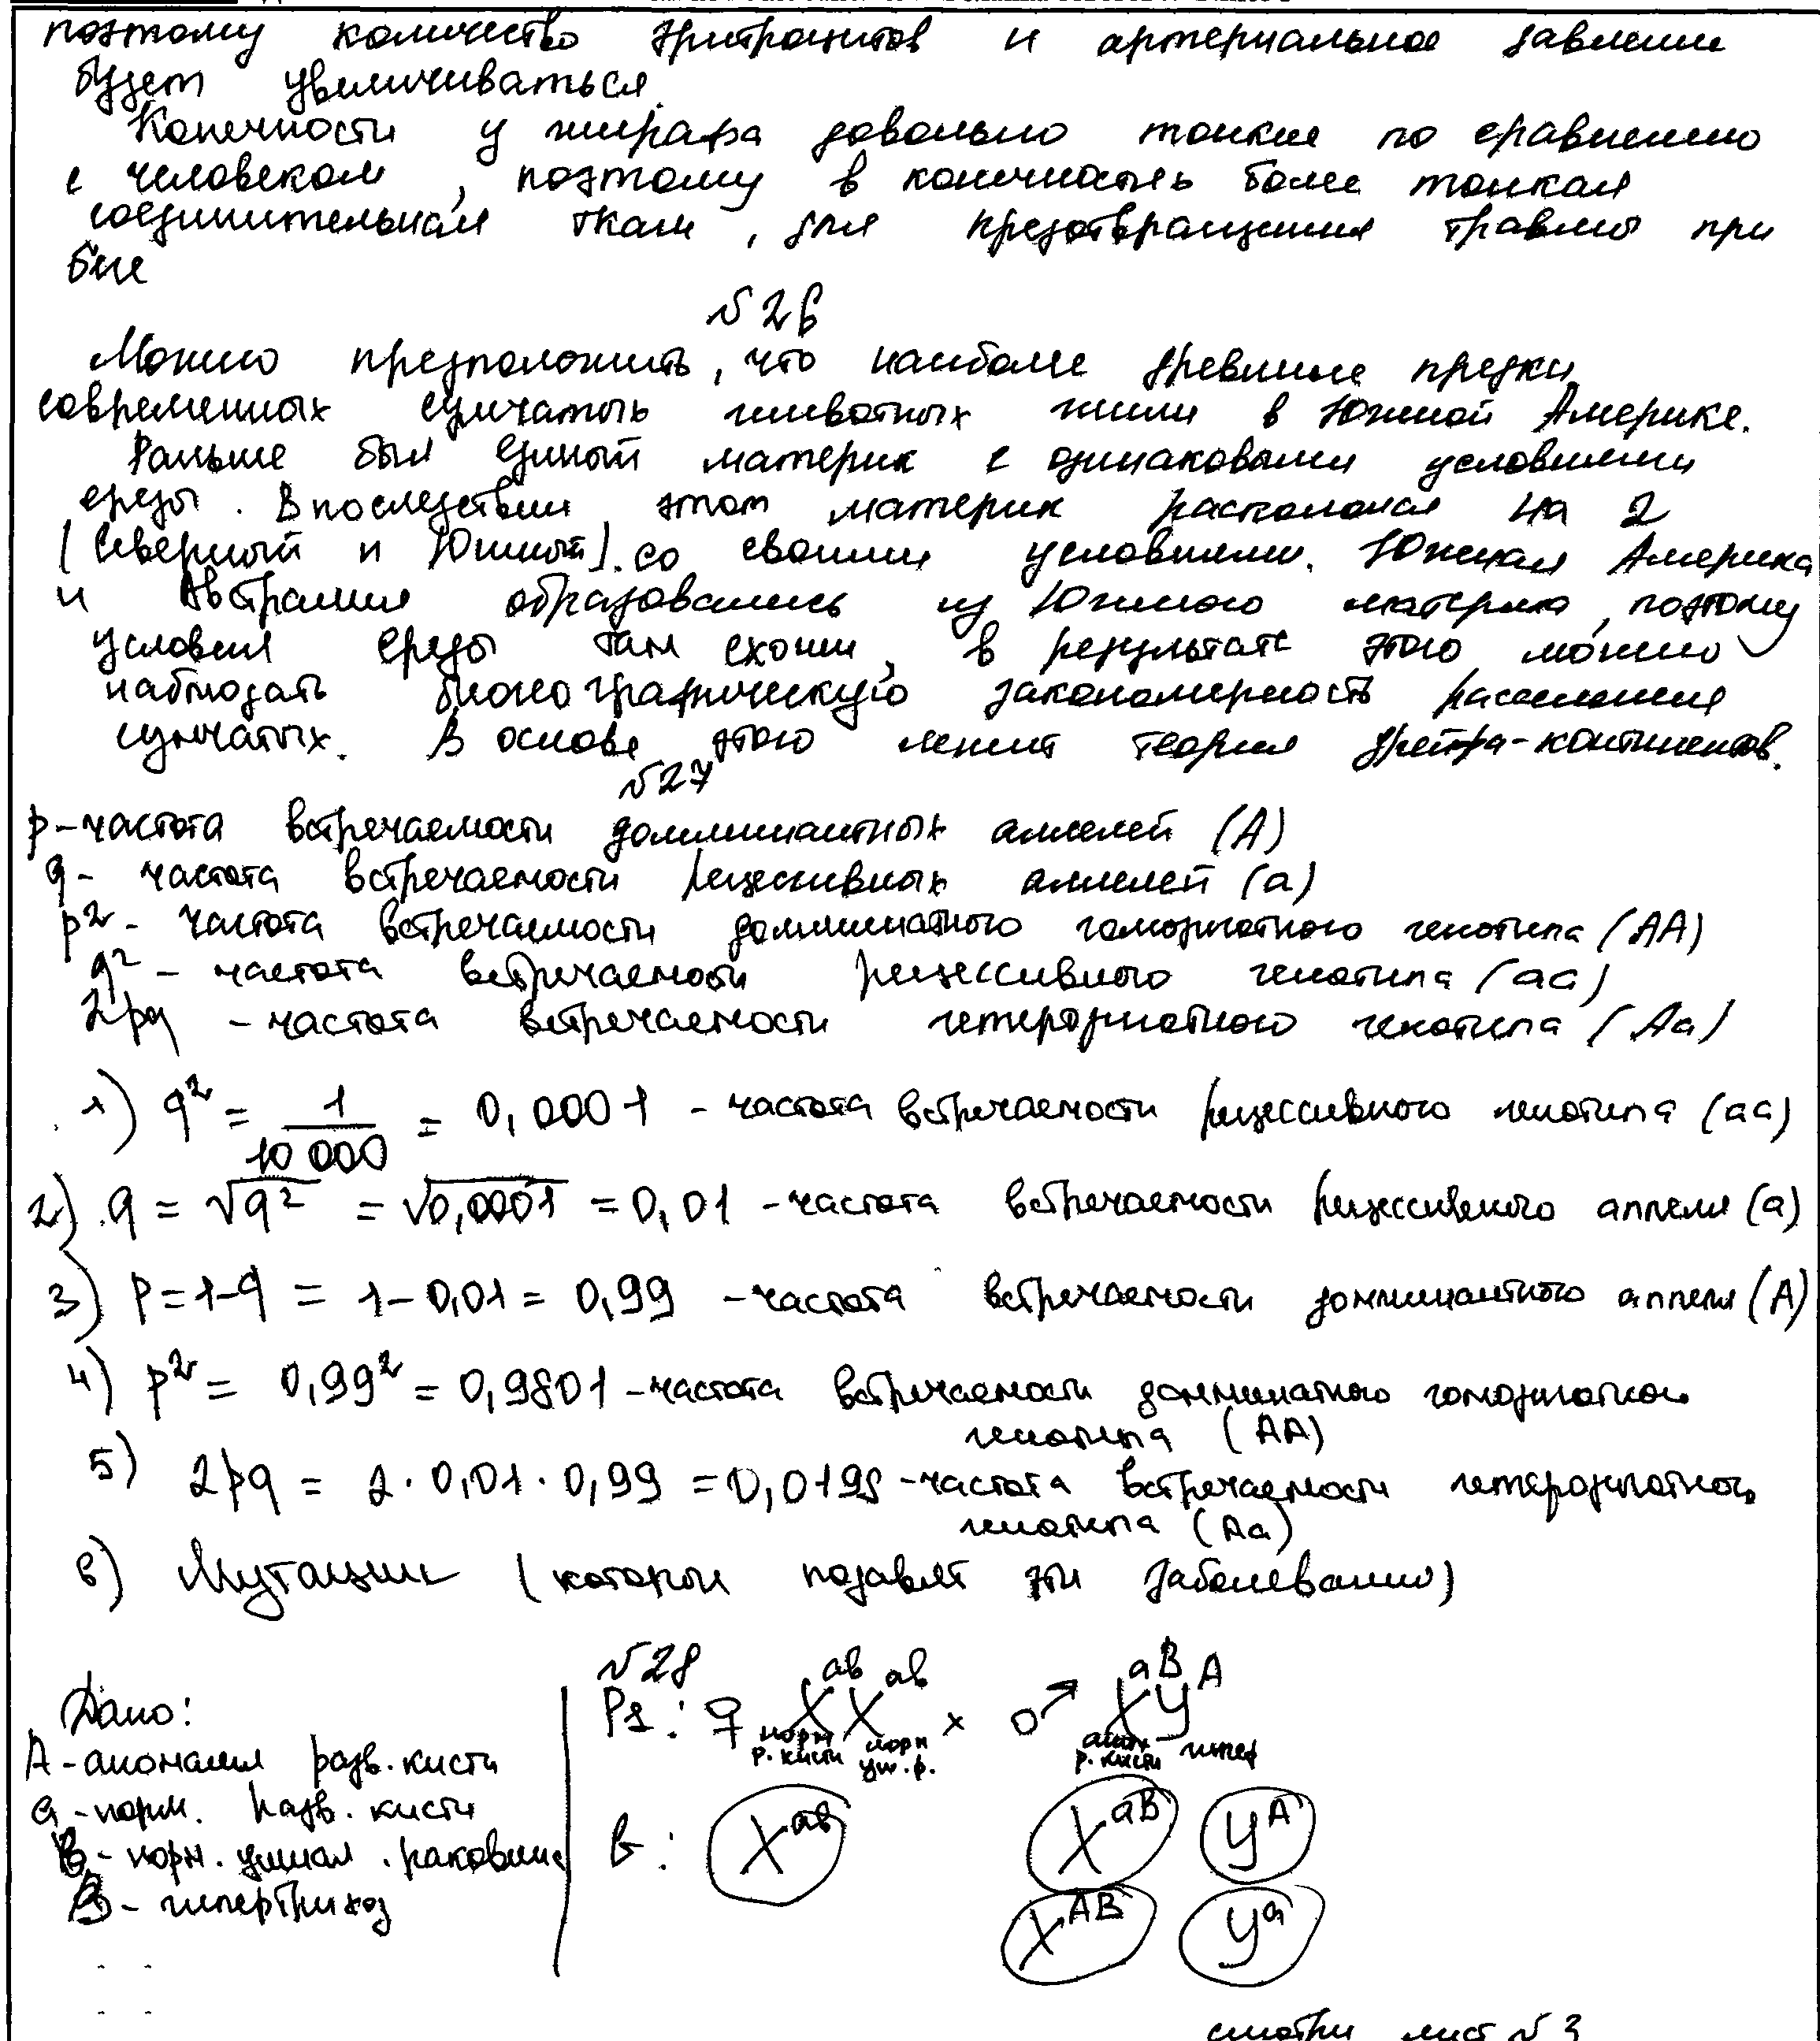 поэтому количество эритроцитов и артериальное давление
будет увеличиваться.
Конечности у жирафа довольно тонкие по сравнению
с человеком, поэтому в конечностях более тонкая
соединительная ткань, для предотвращения травмы при
беге
№26
Можно предположить, что наиболее древние предки
современных сумчатых животных жили в Южной Америке.
Раньше был единый материк с одинаковыми условиями
среды. Впоследствии этот материк раскололся на 2
(Северный и Южный). со своими условиями. Южная Америка
и Австралия образовались из Южного материка, поэтому
условия среды там схожи, в результате этого можно
наблюдать биогеографическую закономерность расселения
сумчатых. В основе этого лежит теория дрейфа-континентов.
№27
p-частота встречаемости доминантных аллелей (А)
q- частота встречаемости рецессивных аллелей (а)
p² - частота встречаемости доминатного гомозиготного генотипа (АА)
q² - частота встречаемости рецессивного генотипа (аа)
2pq - частота встречаемости гетерозиготного генотипа (Аа)
1) q² = 1/10 000 = 0,0001 - частота встречаемости рецессивного генотипа (аа)
2) q = √q² = √0,0001 = 0,01 - частота встречаемости рецессивного аллеля (а)
3) p=1-q = 1-0,01= 0,99 - частота встречаемости доминантного аллеля (А)
4) p² = 0,99² = 0,9801 - частота встречаемости доминатного гомозиготного
генотипа (АА)
5) 2pq = 2·0,01·0,99 = 0,0198 - частота встречаемости гетерозиготного
генотипа (Аа)
6) Мутации (которые эти заболевание)
№28
Дано:
P1: ♀ XᵃᵇXᵃᵇ × ♂ XᵃᴮYᴬ
норм р. кисти норм уш. р. р. кисти
А-аномалия разв. кисти
а-норм. разв. кисти
- норм. ушная. раковина
- гипертрихоз
G: Xᵃᵇ Xᵃᴮ Yᴬ
Xᴬᴮ Yᵃ
смотри лист №3